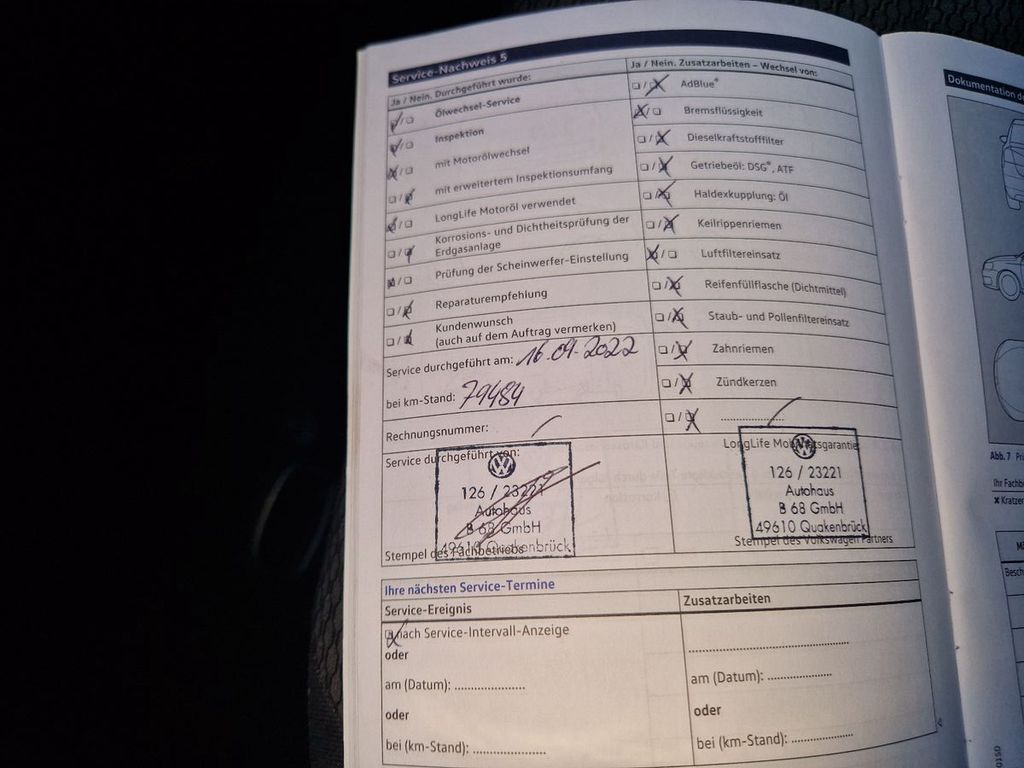 Service-Nachweis 5
Ja / Nein. Durchgeführt wurde:
Ölwechsel-Service
Inspektion
mit Motorölwechsel
mit erweitertem Inspektionsumfang
LongLife Motoröl verwendet
Korrosions- und Dichtheitsprüfung der
Erdgasanlage
Prüfung der Scheinwerfer-Einstellung
Reparaturempfehlung
Kundenwunsch
(auch auf dem Auftrag vermerken)
Service durchgeführt am: 16.09.2022
bei km-Stand: 79484
Rechnungsnummer:
Service durchgeführt von:
126 / 23221
Autohaus
B 68 GmbH
49610 Quakenbrück
Stempel des Fachbetriebs
Ja / Nein. Zusatzarbeiten – Wechsel von:
AdBlue®
Bremsflüssigkeit
Dieselkraftstofffilter
Getriebeöl: DSG®, ATF
Haldexkupplung: Öl
Keilrippenriemen
Luftfiltereinsatz
Reifenfüllflasche (Dichtmittel)
Staub- und Pollenfiltereinsatz
Zahnriemen
Zündkerzen
LongLife Mobilitätsgarantie
126 / 23221
Autohaus
B 68 GmbH
49610 Quakenbrück
Stempel des Volkswagen Partners
Ihre nächsten Service-Termine
Service-Ereignis
nach Service-Intervall-Anzeige
oder
am (Datum): ....................
oder
bei (km-Stand): ....................
Zusatzarbeiten
am (Datum): ....................
oder
bei (km-Stand): ....................
Dokumentation
Abb. 7
Ihr Fachb
x Kratzer
Besch